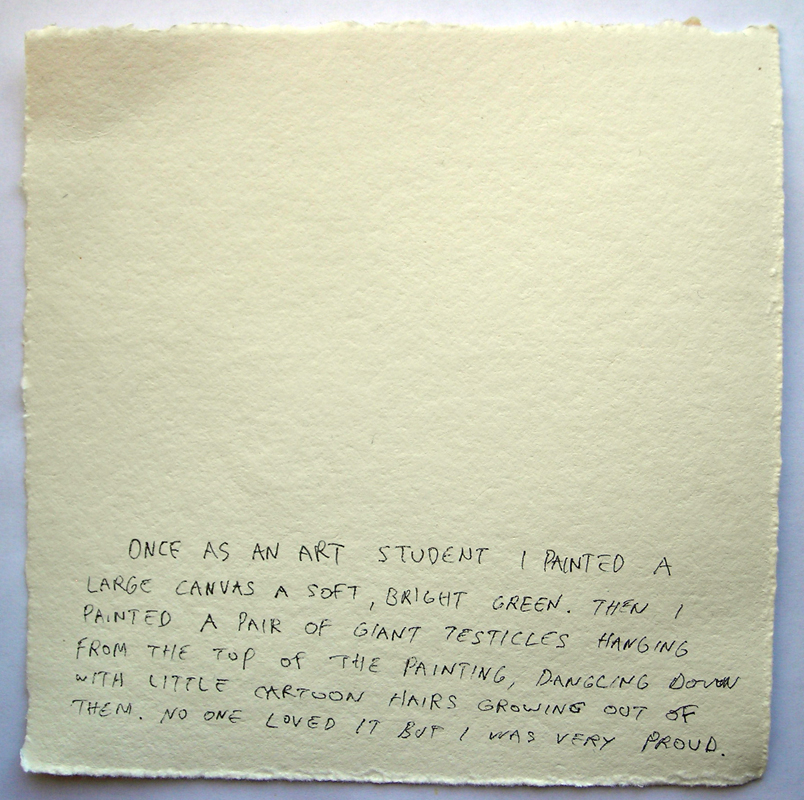 ONCE AS AN ART STUDENT I PAINTED A
LARGE CANVAS A SOFT, BRIGHT GREEN. THEN I
PAINTED A PAIR OF GIANT TESTICLES HANGING
FROM THE TOP OF THE PAINTING, DANGLING DOWN
WITH LITTLE CARTOON HAIRS GROWING OUT OF
THEM. NO ONE LOVED IT BUT I WAS VERY PROUD.